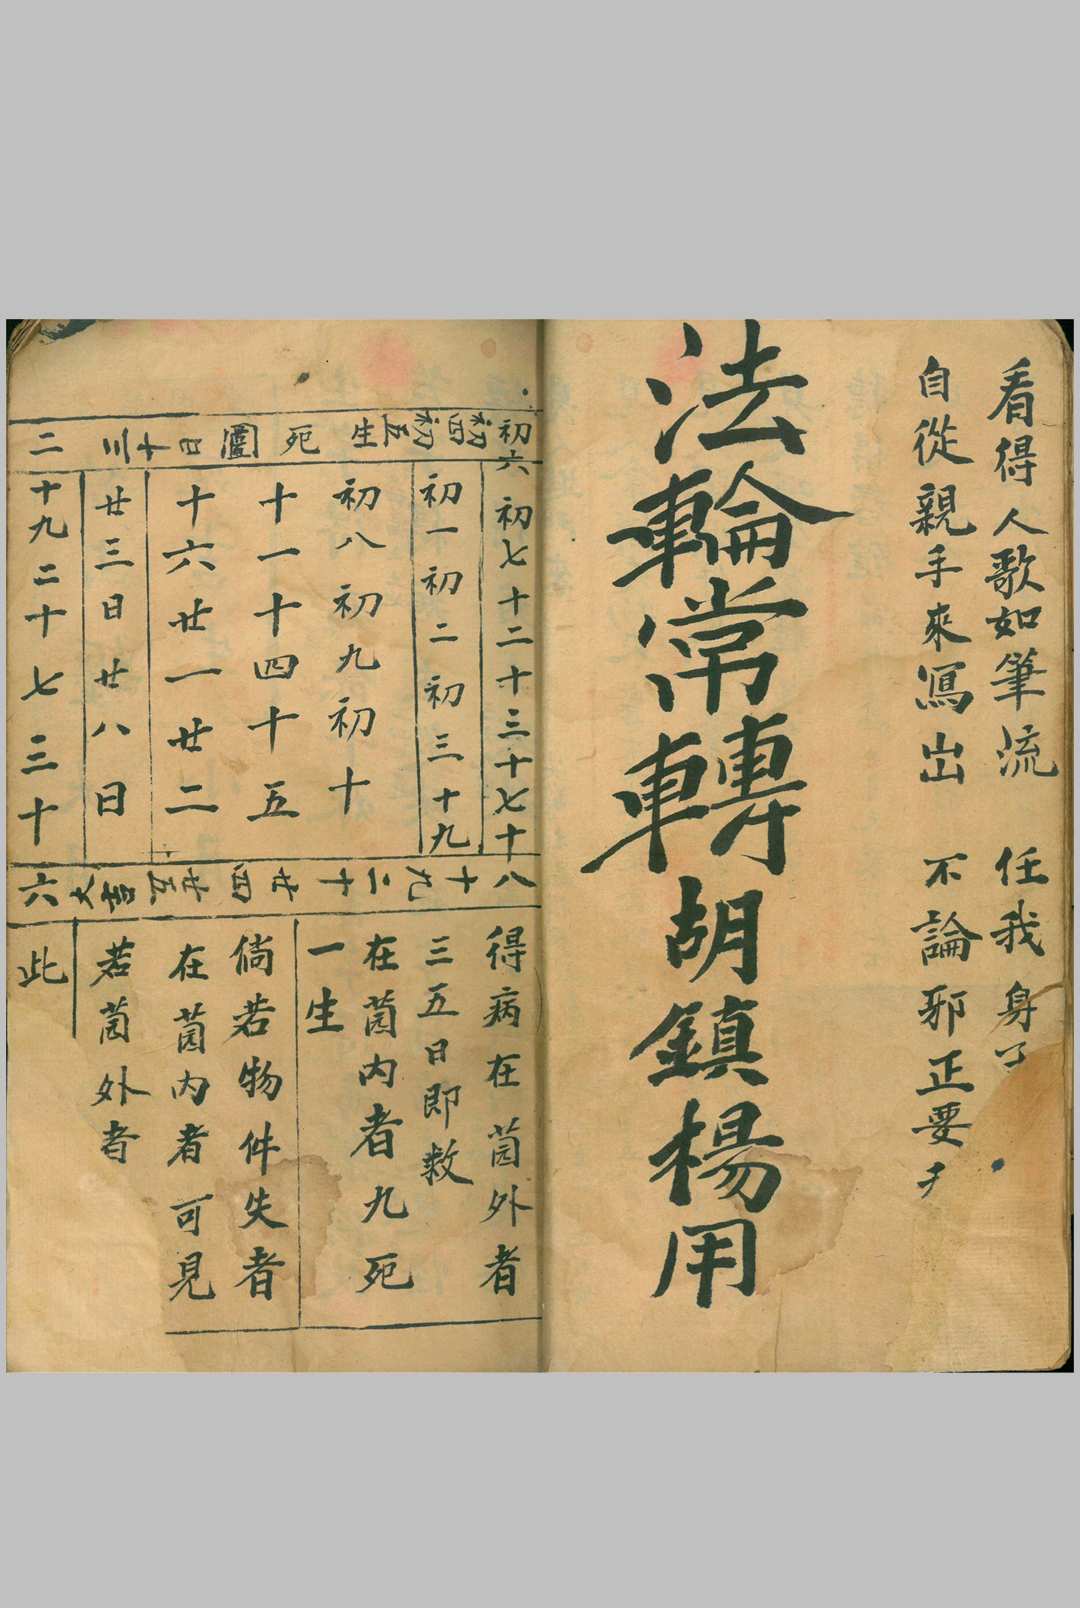 看得人歌如筆流 任我身
自從親手來寫出 不論邪正要
法輪常轉胡鎮楊用
初四初五生死圖日十三二
初六初七十二十三十七十八
初一初二初三十九
初八初九初十
十一十四十五
十六廿一廿二
廿三日廿八日
十九二十七三十
十九二十廿四廿五吉大六
得病在茵外者
三五日即救
在茵内者九死
一生
倘若物件失者
在茵内者可見
若茵外者
此